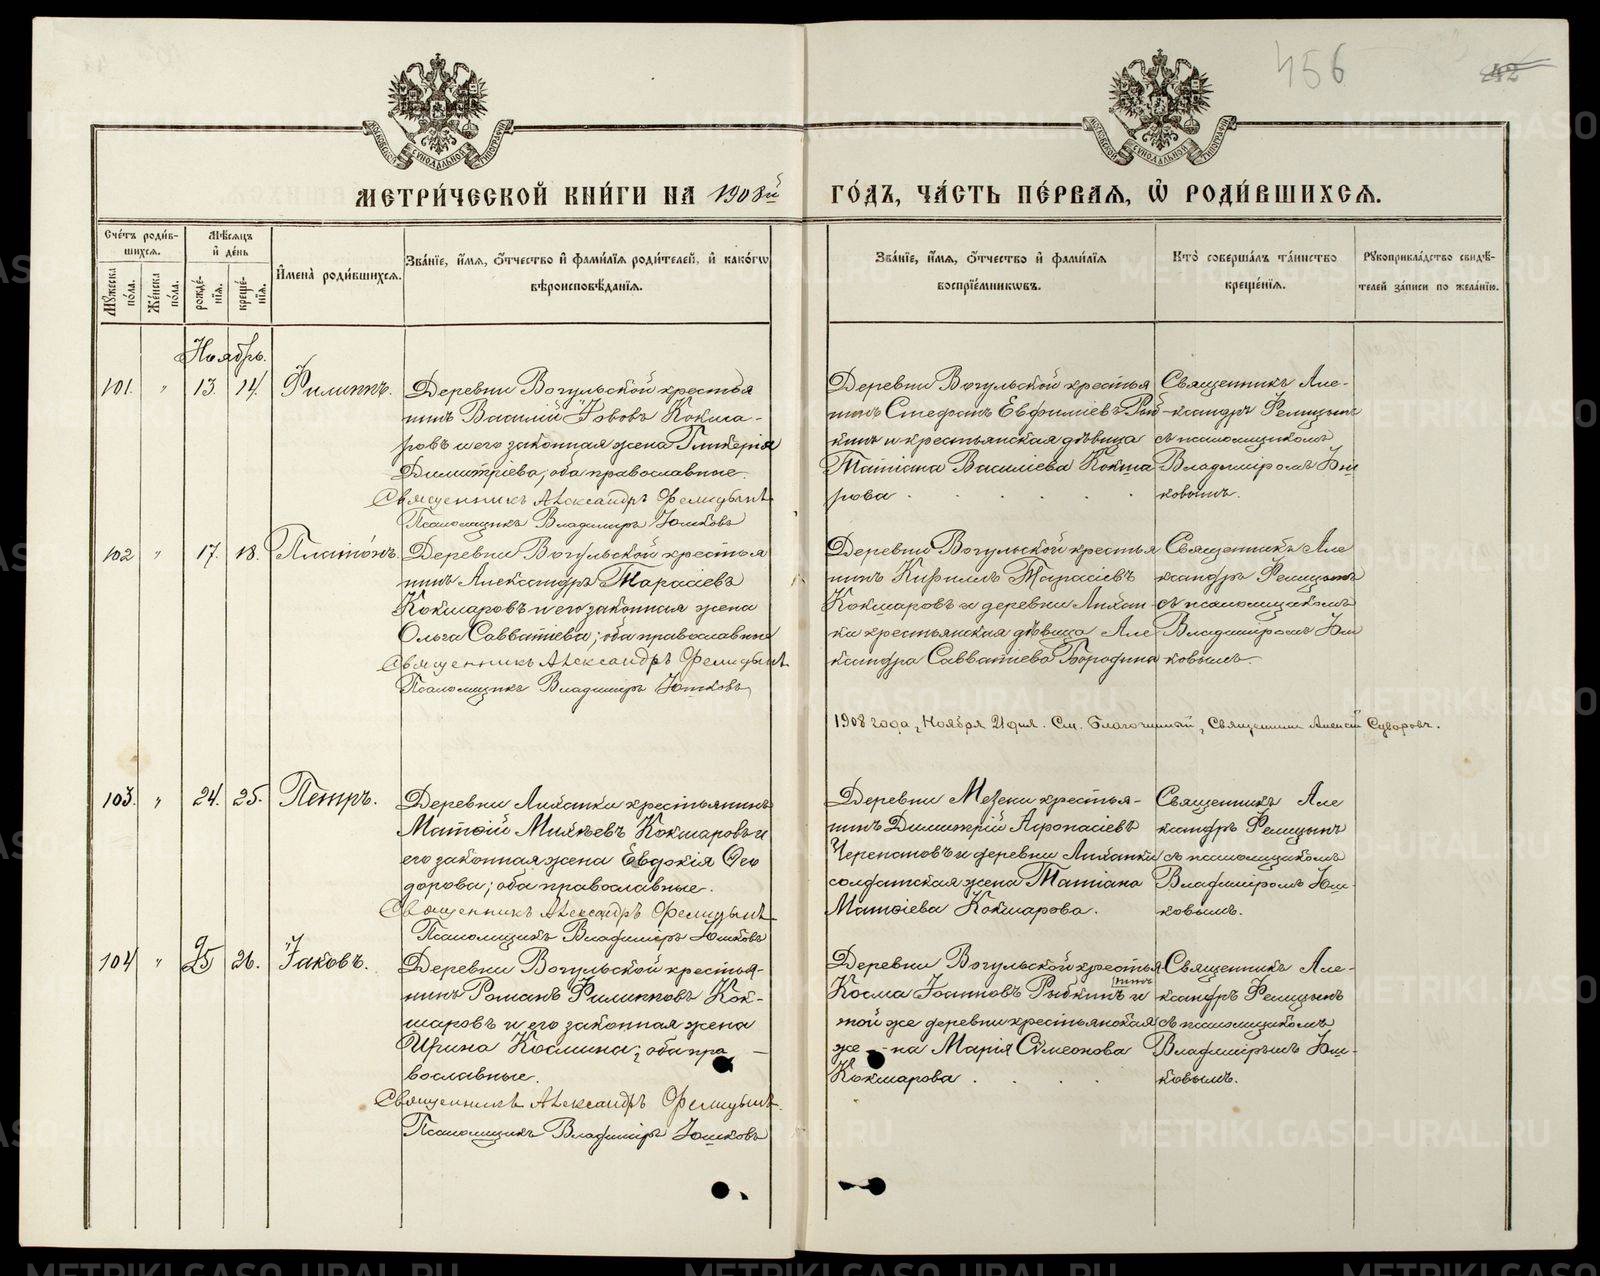 456
42
МЕТРИ́ЧЕСКОЙ КНИ́ГИ НА 1908й ГО́ДЪ, ЧА́СТЬ ПЕ́РВАЯ, Ѽ РОДИ́ВШИХСѦ.
Сче́тъ роди́в-
шихсѧ.
Мѣ́сѧцъ
и҆ де́нь
Мꙋ́жеска
по́ла.
Же́нска
по́ла.
рожде́-
нїѧ.
креще́-
нїѧ.
И҆мена̀ роди́вшихсѧ.
Зва́нїе, и҆́мѧ, ѻ҆́тчество и҆ фами́лїѧ роди́телей, и҆ како́гѡ
вѣроисповѣ́данїѧ.
Зва́нїе, и҆́мѧ, ѻ҆́тчество и҆ фами́лїѧ
воспрїе́мникѡвъ.
Кто̀ соверша́лъ та́инство
креще́нїѧ.
Рꙋкоприкла́дство свидѣ́-
телей за́писи по жела́нїю.
Ноябрь.
101. " 13. 14. Филиппъ.
Деревни Вогульской крестья
нинъ Василій Іововъ Кокша-
ровъ и его законная жена Гликерія
Димитріева; оба православные.
Священникъ Александръ Фелицынъ
Псаломщикъ Владиміръ Юшковъ
Деревни Вогульской крестья
нинъ Стефанъ Евфиміевъ Рыб
кинъ и крестьянская дѣвица
Татіана Василіева Кокша
рова
Священникъ Але-
ксандръ Фелицынъ
съ псаломщикомъ
Владиміромъ Юш
ковымъ.
102 " 17. 18. Платонъ.
Деревни Вогульской крестья
нинъ Александръ Тарасіевъ
Кокшаровъ и его законная жена
Ольга Савватіева; оба православные
Священникъ Александръ Фелицынъ
Псаломщикъ Владиміръ Юшковъ
Деревни Вогульской крестья
нинъ Кириллъ Тарасіевъ
Кокшаровъ и деревни Лихан
ки крестьянская дѣвица Але
ксандра Савватіева Бородина
Священникъ Але
ксандръ Фелицынъ
съ псаломщикомъ
Владиміромъ Юш
ковымъ.
1908 года, Ноября 21 дня. См. Благочинный, Священникъ Алексій Суворовъ.
103. " 24. 25. Петръ.
Деревни Лиханки крестьянинъ
Матѳій Михѣевъ Кокшаровъ и
его законная жена Евдокія Ѳео
дорова; оба православные.
Священникъ Александръ Фелицынъ
Псаломщикъ Владиміръ Юшковъ
Деревни Мезени крестья-
нинъ Димитрій Аѳонасіевъ
Черепановъ и деревни Лиханки
солдатская жена Татіана
Матѳіева Кокшарова.
Священникъ Але
ксандръ Фелицынъ
съ псаломщикомъ
Владиміромъ Юш-
ковымъ.
104 " 25 26. Іаковъ.
Деревни Вогульской крестья-
нинъ Романъ Филипповъ Кок-
шаровъ и его законная жена
Ирина Космина; оба пра
вославные.
Священникъ Александръ Фелицынъ
Псаломщикъ Владиміръ Юшковъ
Деревни Вогульской крестья
нинъ
Косма Іоанновъ Рыбкинъ и
той же деревни крестьянская
же на Марія Сѵмеонова
Кокшарова
Священникъ Але-
ксандръ Фелицынъ
съ псаломщикомъ
Владиміромъ Юш-
ковымъ.
METRIKI.GASO-URAL.RU